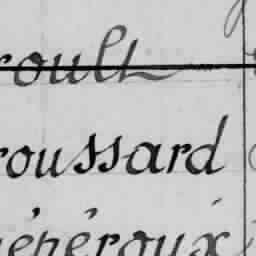 roult
roussard
épéroux